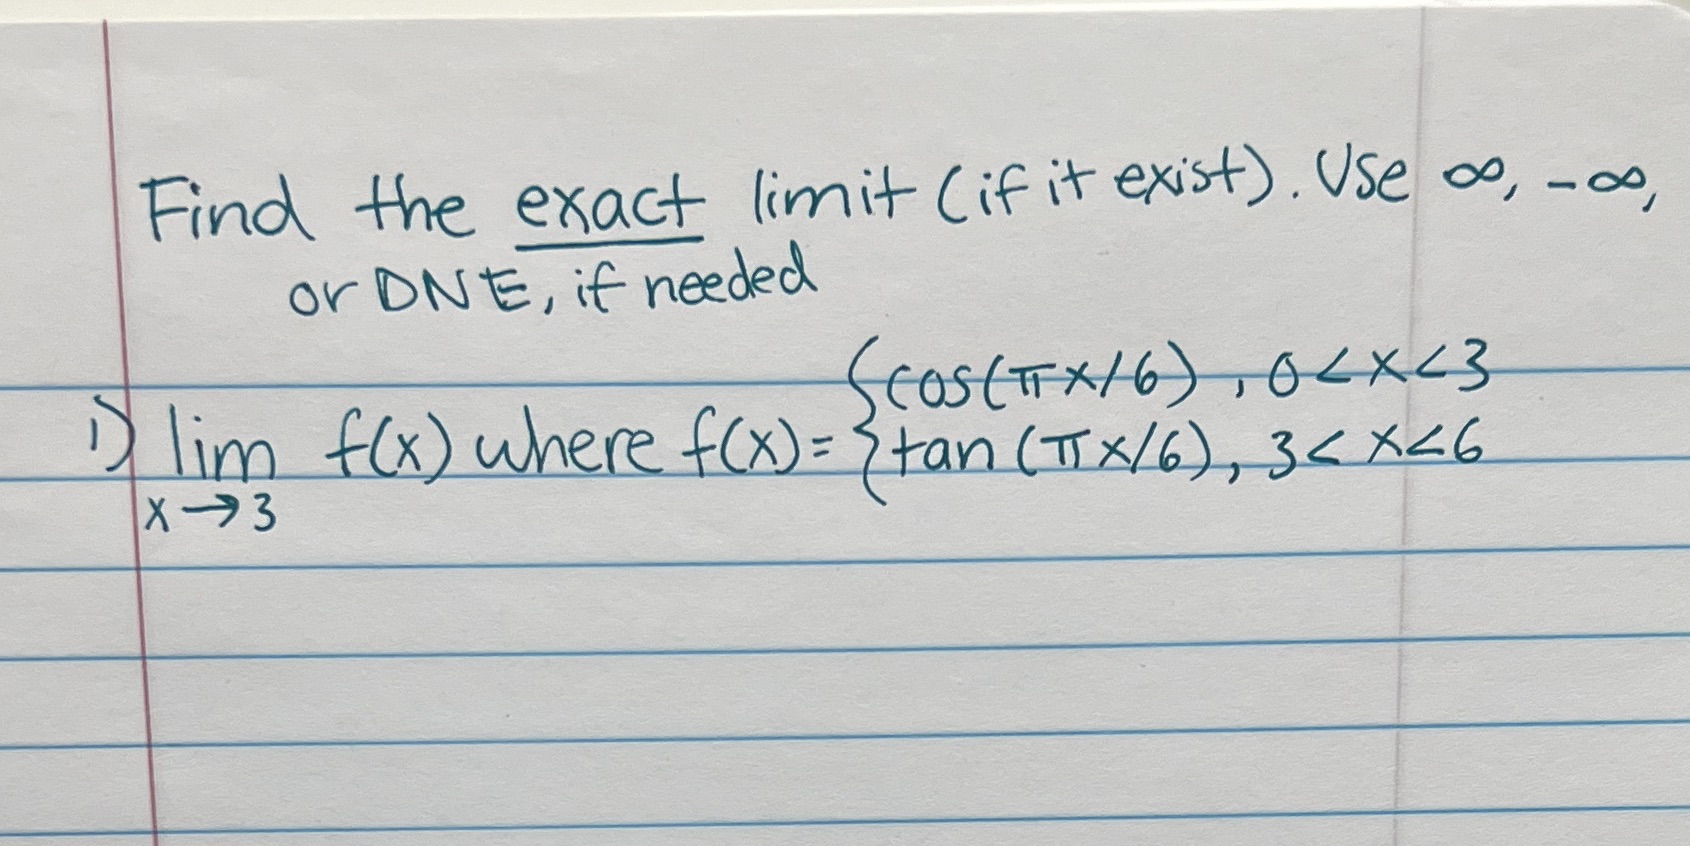 Find the exact limit (if it exist). Use ∞, -∞,
or DNE, if needed
1) lim f(x) where f(x)= { cos(πx/6), 0<x<3
x→3 { tan(πx/6), 3<x<6